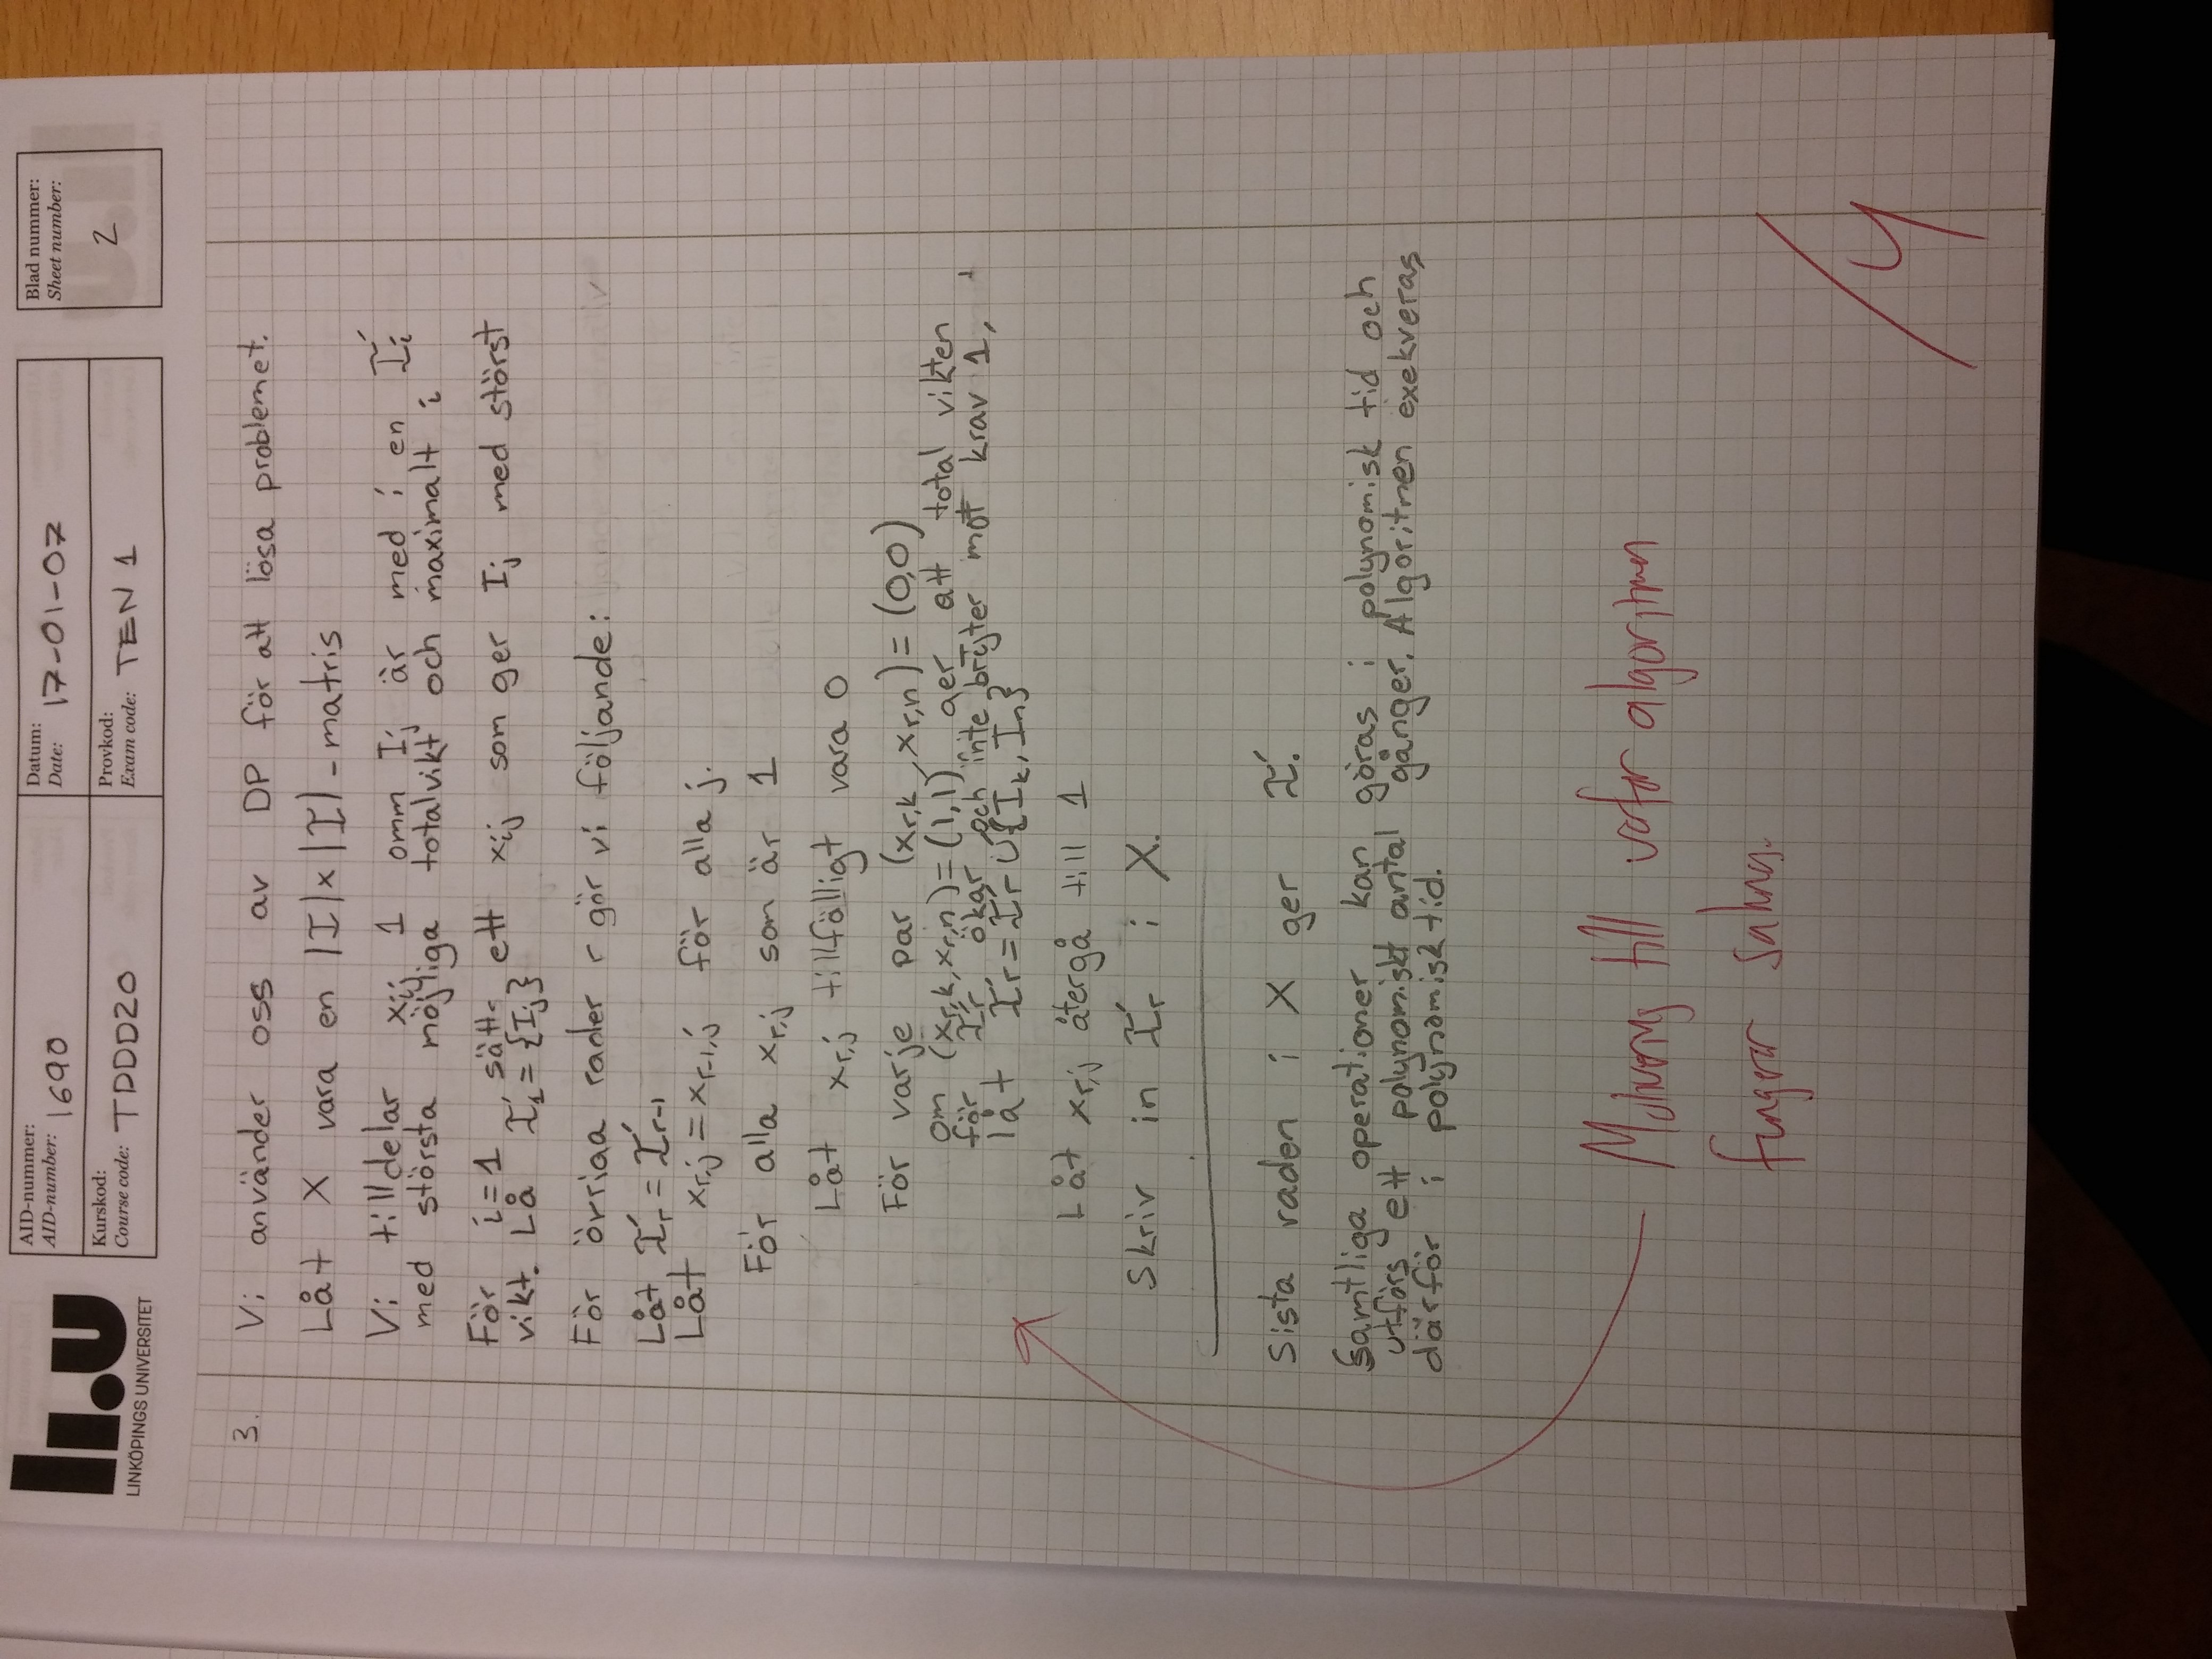 li.u
LINKÖPINGS UNIVERSITET
AID-nummer:
AID-number: 1690
Datum:
Date: 17-01-07
Blad nummer:
Sheet number:
2
Kurskod:
Course code: TDDD20
Provkod:
Exam code: TEN 1
3. Vi använder oss av DP för att lösa problemet.
Låt X vara en |I|x|I|-matris
Vi tilldelar xij 1 omm Ij är med i en I'i
med största möjliga totalvikt och maximalt i
För i=1 sätt ett xij som ger Ij med störst
vikt. Lå I'1={Ij}
För örriaa rader r gör vi följande:
Låt I'r=I'r-1
Låt xr,j=xr-1,j för alla j.
För alla xr,j som är 1
Låt xr,j tillfälligt vara 0
För varje par (xr,k, xr,n)=(0,0)
om (xr,k, xr,n)=(1,1) ger att total vikten
för I'r ökar och inte bryter mot krav 1,
låt I'r=I'r∪{Ik,In}
Låt xr,j återgå till 1
Skriv in I'r i X.
Sista raden i X ger I'.
Samtliga operationer kan göras i polynomisk tid och
utförs ett polynomiskt antal gånger. Algoritmen exekveras
därför i polynomisk tid.
till varför algoritmen
fungerar saknas.